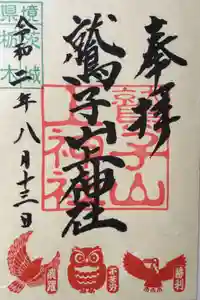 奉拝
鷲子山上神社
鷲子山
上神社
県境
茨城
栃木
令和二年八月十三日
飛躍
不苦労
勝利